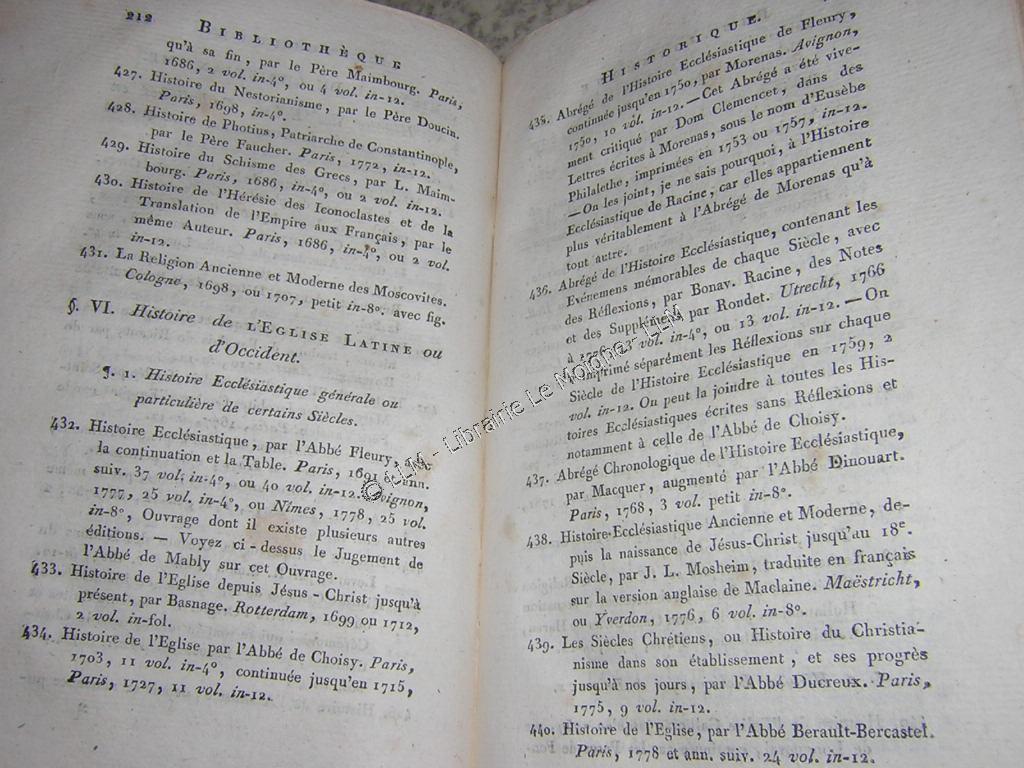 212
BIBLIOTHÈQUE
qu'à sa fin, par le Père Maimbourg. Paris,
1686, 2 vol. in-4°, ou 4 vol. in-12.
427. Histoire du Nestorianisme, par le Père Doucin.
Paris, 1698, in-4°.
428. Histoire de Photius, Patriarche de Constantinople,
par le Père Faucher. Paris, 1772, in-12.
429. Histoire du Schisme des Grecs, par L. Maim-
bourg. Paris, 1686, in-4°, ou 2 vol. in-12.
430. Histoire de l'Hérésie des Iconoclastes et de la
Translation de l'Empire aux Français, par le
même Auteur. Paris, 1686, in-4°, ou 2 vol.
in-12.
431. La Religion Ancienne et Moderne des Moscovites.
Cologne, 1698, ou 1707, petit in-8°. avec fig.
§. VI. Histoire de L'EGLISE LATINE ou
d'Occident.
¶. 1. Histoire Ecclésiastique générale ou
particulière de certains Siècles.
432. Histoire Ecclésiastique, par l'Abbé Fleury, avec
la continuation et la Table. Paris, 1691 et ann.
suiv. 37 vol. in-4°, ou 40 vol. in-12. Avignon,
1777, 25 vol. in-4°, ou Nîmes, 1778, 25 vol.
in-8°, Ouvrage dont il existe plusieurs autres
éditions. — Voyez ci-dessus le Jugement de
l'Abbé de Mably sur cet Ouvrage.
433. Histoire de l'Eglise depuis Jésus-Christ jusqu'à
présent, par Basnage. Rotterdam, 1699 ou 1712,
2 vol. in-fol.
434. Histoire de l'Eglise par l'Abbé de Choisy. Paris,
1703, 11 vol. in-4°, continuée jusqu'en 1715,
Paris, 1727, 11 vol. in-12.
HISTORIQUE.
435. Abrégé de l'Histoire Ecclésiastique de Fleury,
continuée jusqu'en 1750, par Morenas. Avignon,
1750, 10 vol. in-12. — Cet Abrégé a été vive-
ment critiqué par Dom Clemencet, dans des
Lettres écrites à Morenas, sous le nom d'Eusèbe
Philalethe, imprimées en 1753 ou 1757, in-12.
— On les joint, je ne sais pourquoi, à l'Histoire
Ecclésiastique de Racine, car elles appartiennent
plus véritablement à l'Abrégé de Morenas qu'à
tout autre.
436. Abrégé de l'Histoire Ecclésiastique, contenant les
Evénemens mémorables de chaque Siècle, avec
des Réflexions, par Bonav. Racine, des Notes
et des Supplémens, par Rondet. Utrecht, 1766
à vol. in-4°, ou 13 vol. in-12. — On
imprimé séparément les Réflexions sur chaque
Siècle de l'Histoire Ecclésiastique en 1759, 2
vol. in-12. On peut la joindre à toutes les His-
toires Ecclésiastiques écrites sans Réflexions et
notamment à celle de l'Abbé de Choisy.
437. Abrégé Chronologique de l'Histoire Ecclésiastique,
par Macquer, augmenté par l'Abbé Dinouart.
Paris, 1768, 3 vol. petit in-8°.
438. Histoire Ecclésiastique Ancienne et Moderne, de-
puis la naissance de Jésus-Christ jusqu'au 18e.
Siècle, par J. L. Mosheim, traduite en français
sur la version anglaise de Maclaine. Maëstricht,
ou Yverdon, 1776, 6 vol. in-8°.
439. Les Siècles Chrétiens, ou Histoire du Christia-
nisme dans son établissement, et ses progrès
jusqu'à nos jours, par l'Abbé Ducreux. Paris,
1775, 9 vol. in-12.
440. Histoire de l'Eglise, par l'Abbé Berault-Bercastel.
Paris, 1778 et ann. suiv. 24 vol. in-12.
© LLM - Librairie Le Moigner - LLM